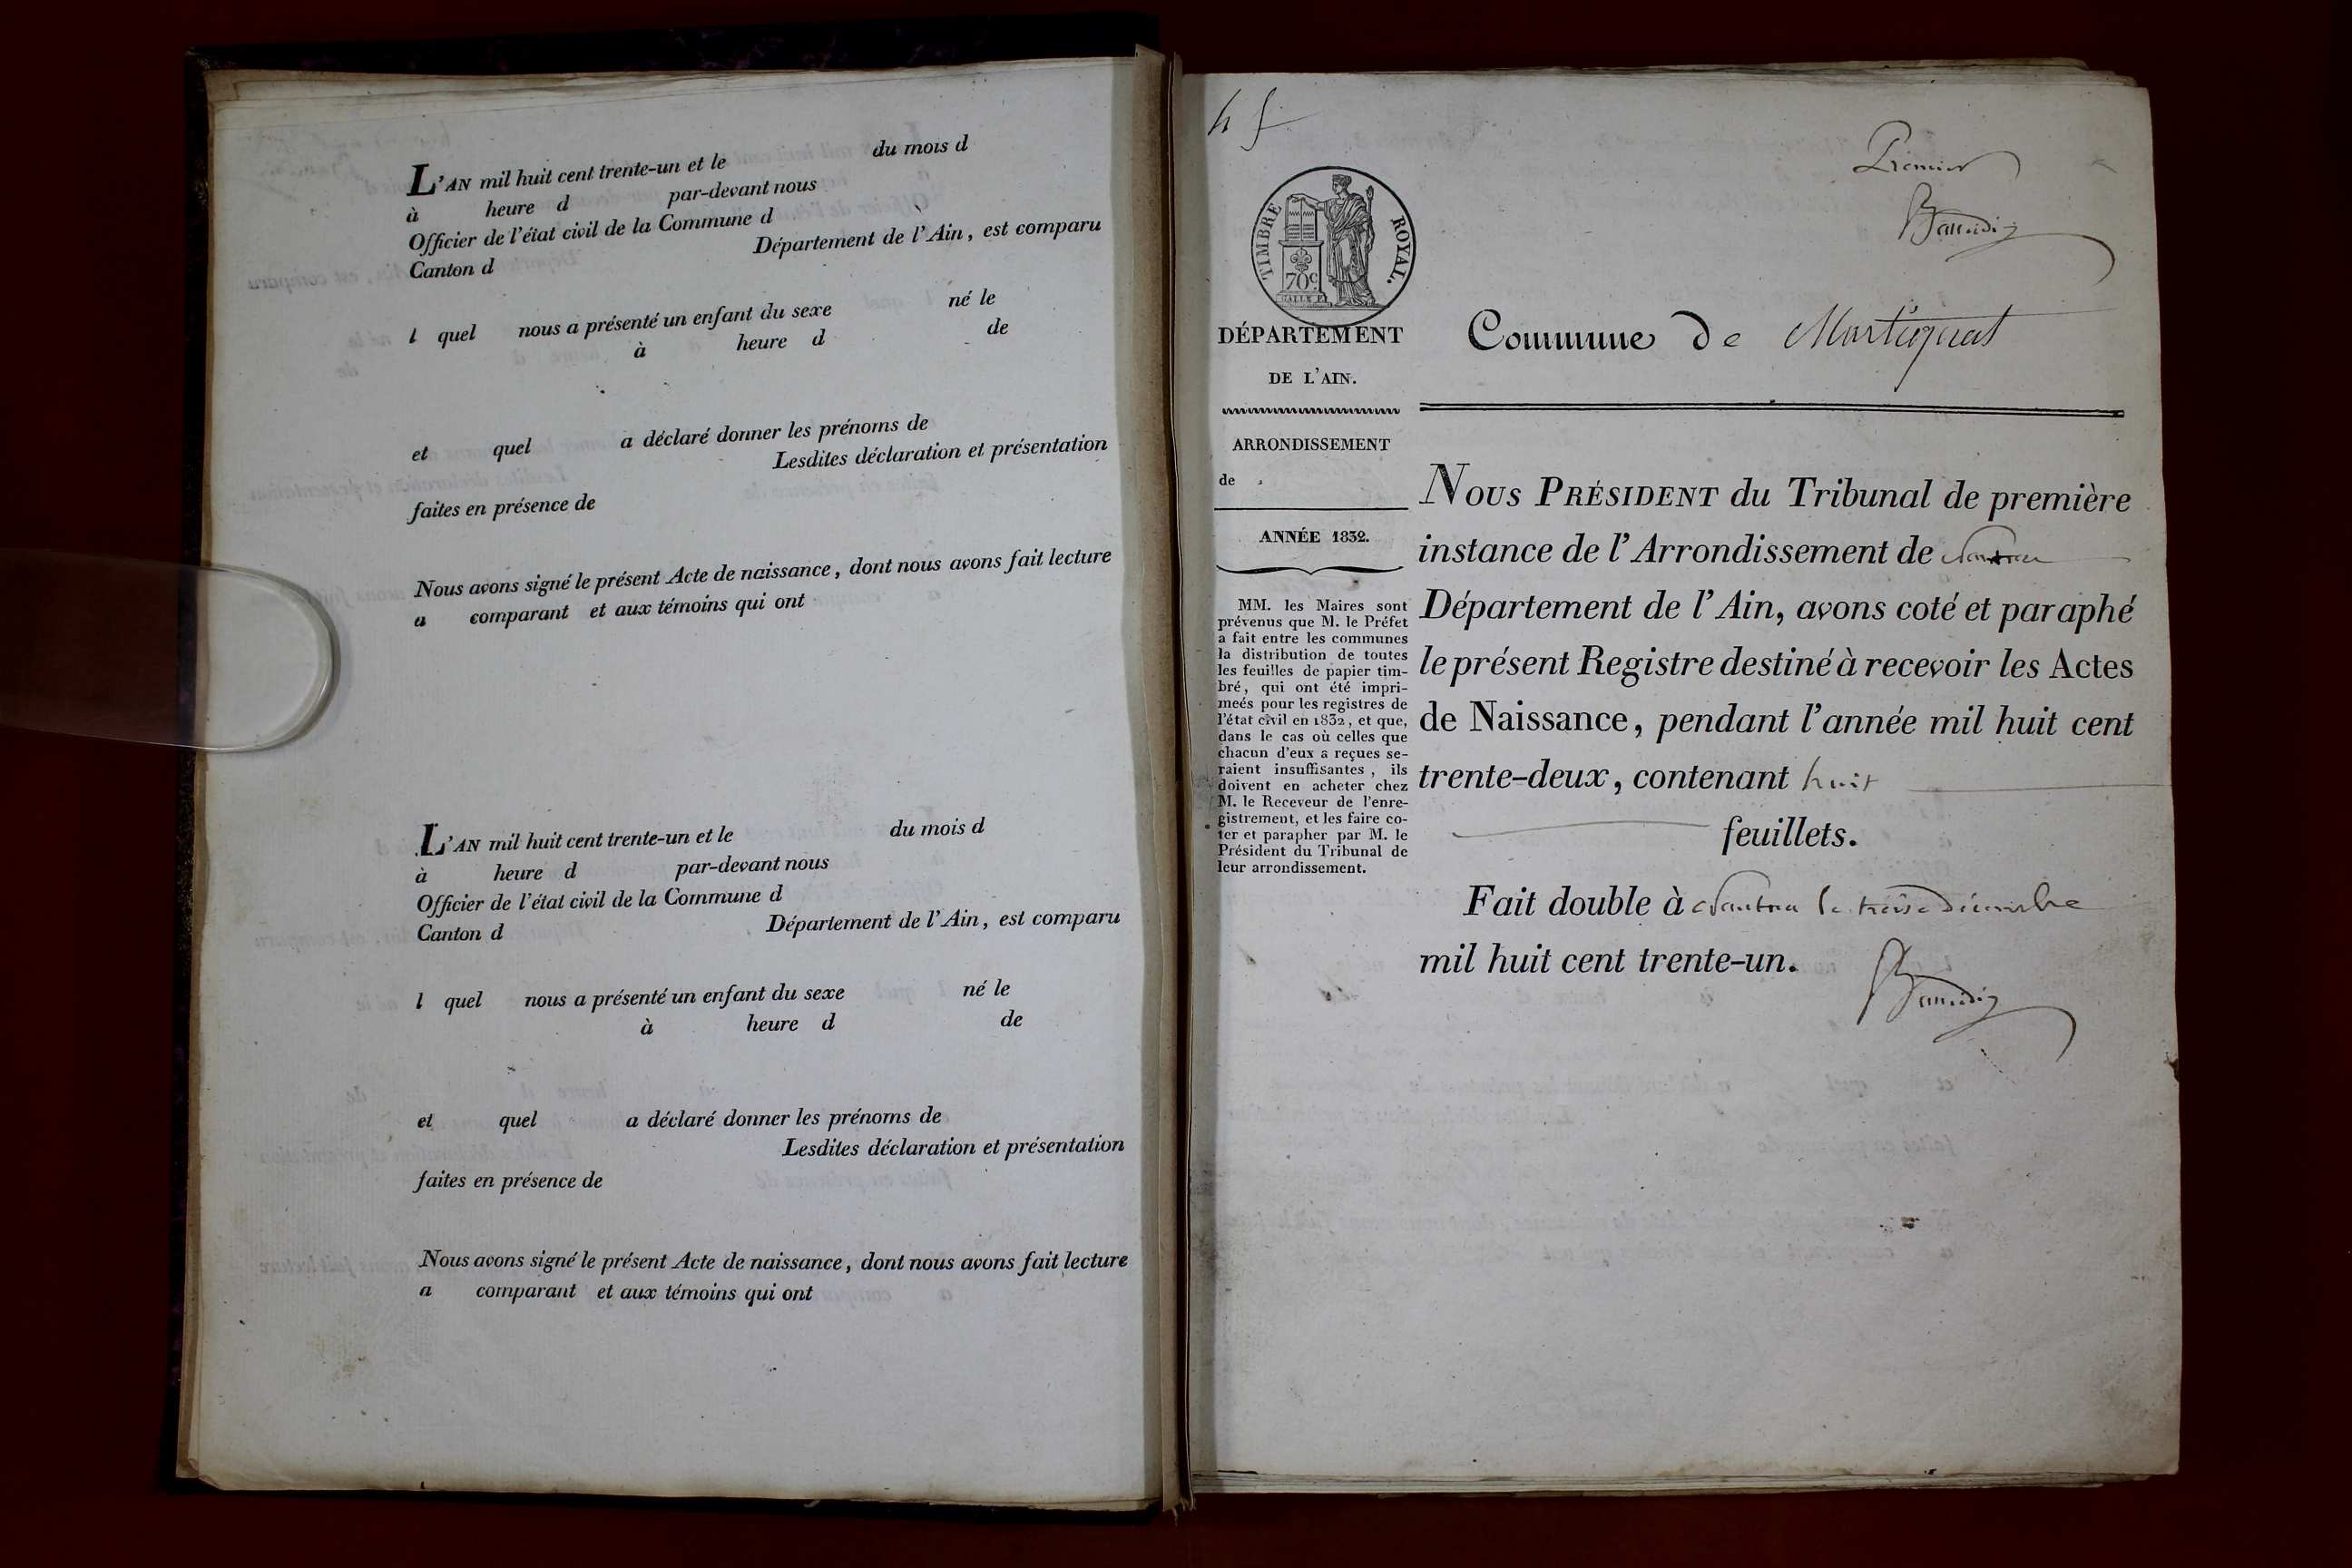 L'AN mil huit cent trente-un et le du mois d
à heure d par-devant nous
Officier de l'état civil de la Commune d
Canton d Département de l'Ain, est comparu
l quel nous a présenté un enfant du sexe né le
à heure d de
et quel a déclaré donner les prénoms de
Lesdites déclaration et présentation
faites en présence de
Nous avons signé le présent Acte de naissance, dont nous avons fait lecture
a comparant et aux témoins qui ont
L'AN mil huit cent trente-un et le du mois d
à heure d par-devant nous
Officier de l'état civil de la Commune d
Canton d Département de l'Ain, est comparu
l quel nous a présenté un enfant du sexe né le
à heure d de
et quel a déclaré donner les prénoms de
Lesdites déclaration et présentation
faites en présence de
Nous avons signé le présent Acte de naissance, dont nous avons fait lecture
a comparant et aux témoins qui ont
Premier
TIMBRE ROYAL.
70c
DÉPARTEMENT
DE L'AIN.
ARRONDISSEMENT
de
ANNÉE 1832.
MM. les Maires sont
prévenus que M. le Préfet
a fait entre les communes
la distribution de toutes
les feuilles de papier tim-
bré, qui ont été impri-
meés pour les registres de
l'état civil en 1832, et que,
dans le cas où celles que
chacun d'eux a reçues se-
raient insuffisantes, ils
doivent en acheter chez
M. le Receveur de l'enre-
gistrement, et les faire co-
ter et parapher par M. le
Président du Tribunal de
leur arrondissement.
Commune de Martignat
NOUS PRÉSIDENT du Tribunal de première
instance de l'Arrondissement de Nantua
Département de l'Ain, avons coté et paraphé
le présent Registre destiné à recevoir les Actes
de Naissance, pendant l'année mil huit cent
trente-deux, contenant huit
feuillets.
Fait double à Nantua le treise décembre
mil huit cent trente-un.